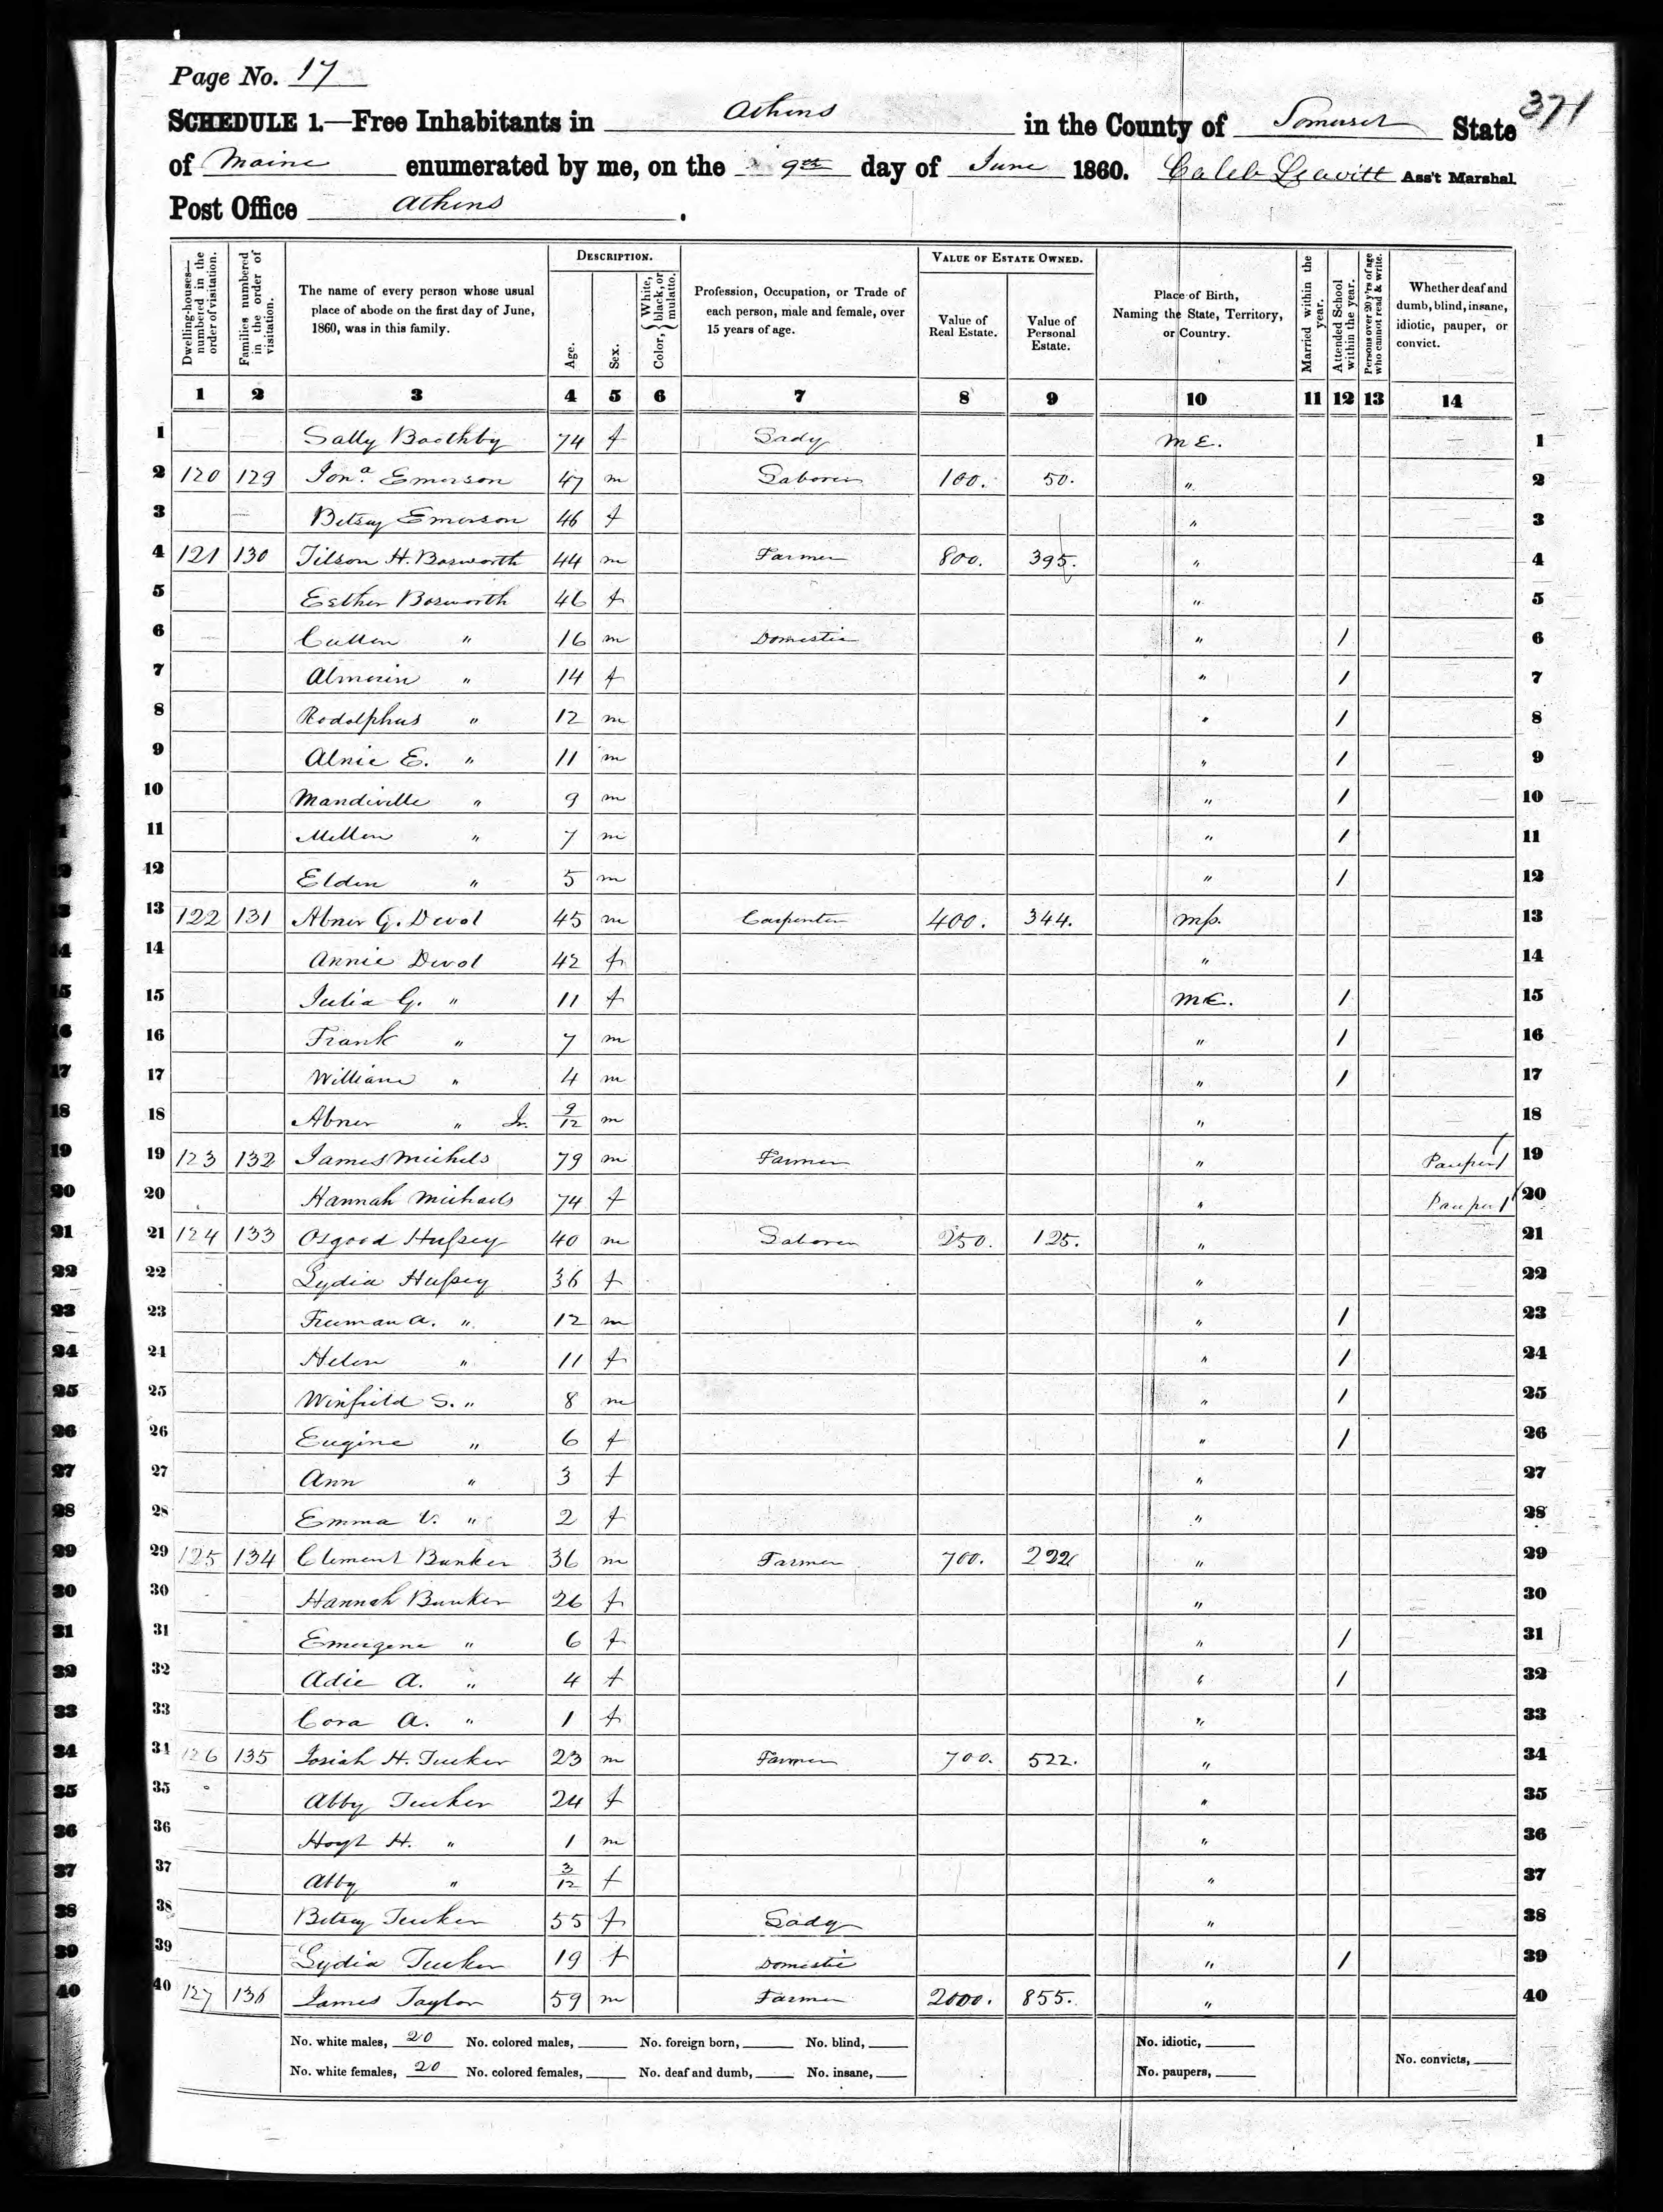 Page No. 17
371
SCHEDULE 1.—Free Inhabitants in Athens in the County of Somerset State
of Maine enumerated by me, on the 9th day of June 1860. Caleb Leavitt Ass't Marshal.
Post Office Athens.
Dwelling-houses—numbered in the order of visitation.
Families numbered in the order of visitation.
The name of every person whose usual place of abode on the first day of June, 1860, was in this family.
DESCRIPTION.
Age.
Sex.
Color, { White, black, or mulatto.
Profession, Occupation, or Trade of each person, male and female, over 15 years of age.
VALUE OF ESTATE OWNED.
Value of Real Estate.
Value of Personal Estate.
Place of Birth, Naming the State, Territory, or Country.
Married within the year.
Attended School within the year.
Persons over 20 y'rs of age who cannot read & write.
Whether deaf and dumb, blind, insane, idiotic, pauper, or convict.
1 2 3 4 5 6 7 8 9 10 11 12 13 14
1 Sally Boothby 74 f Lady ME. 1
2 120 129 Jona. Emerson 47 m Laborer 100. 50. " 2
3 Betsey Emerson 46 f " 3
4 121 130 Tilson H. Bosworth 44 m Farmer 800. 395. " 4
5 Esther Bosworth 46 f " 5
6 Cullen " 16 m Domestic " / 6
7 Almerin " 14 f " / 7
8 Rodolphus " 12 m " / 8
9 Alnie E. " 11 m " / 9
10 Mandiville " 9 m " / 10
11 Mellen " 7 m " / 11
12 Elden " 5 m " / 12
13 122 131 Abner G. Devol 45 m Carpenter 400. 344. Ms. 13
14 Annie Devol 42 f " 14
15 Julia G. " 11 f ME. / 15
16 Frank " 7 m " / 16
17 William " 4 m " / 17
18 Abner " Jr. 9/12 m " 18
19 123 132 James Michels 79 m Farmer " Pauper 19
20 Hannah Michaels 74 f " Pauper 20
21 124 133 Osgood Hussey 40 m Laborer 250. 125. " 21
22 Lydia Hussey 36 f " 22
23 Freeman A. " 12 m " / 23
24 Helen " 11 f " / 24
25 Winfield S. " 8 m " / 25
26 Eugine " 6 f " / 26
27 Ann " 3 f " 27
28 Emma V. " 2 f " 28
29 125 134 Clement Bunker 36 m Farmer 700. 222 " 29
30 Hannah Bunker 26 f " 30
31 Emergene " 6 f " / 31
32 Adie A. " 4 f " / 32
33 Cora A. " 1 f " 33
34 126 135 Josiah H. Tucker 23 m Farmer 700. 522. " 34
35 Abby Tucker 24 f " 35
36 Hoyt H. " 1 m " 36
37 Abby " 3/12 f " 37
38 Betsey Tucker 55 f Lady " 38
39 Lydia Tucker 19 f Domestic " / 39
40 127 136 James Taylor 59 m Farmer 2000. 855. " 40
No. white males, 20 No. colored males, No. foreign born, No. blind, No. idiotic,
No. white females, 20 No. colored females, No. deaf and dumb, No. insane, No. paupers, No. convicts,